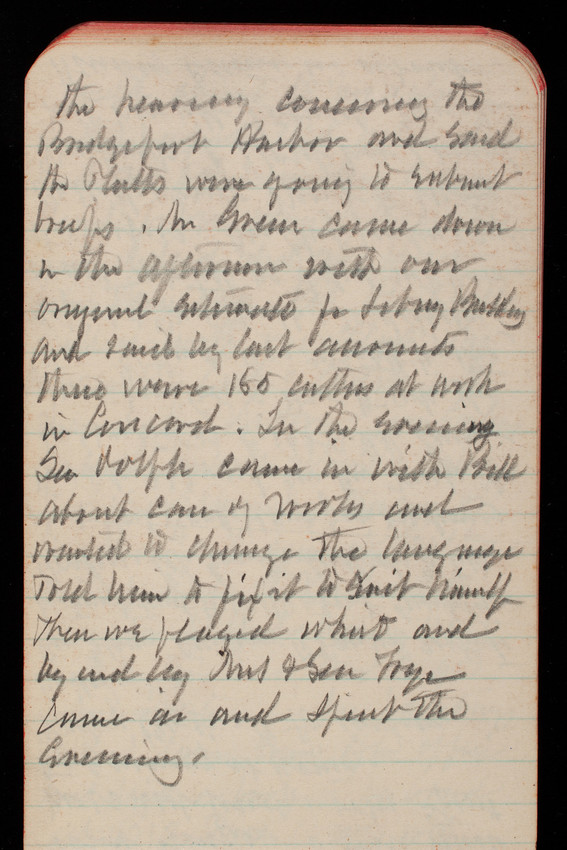 the hearing concerning the
Bridgeport Harbor and said
the Platts were going to submit
briefs. Mr Green came down
in the afternoon with our
original estimate for Library Building
and said by last accounts
there were 155 cutters at work
in Concord. In the evening
Sen Dolph came in with Bill
about care of works and
wanted to change the language
Told him to fix it to suit himself
Then we played whist and
by and by Mrs & Gen Frye
came in and spent the
evening.